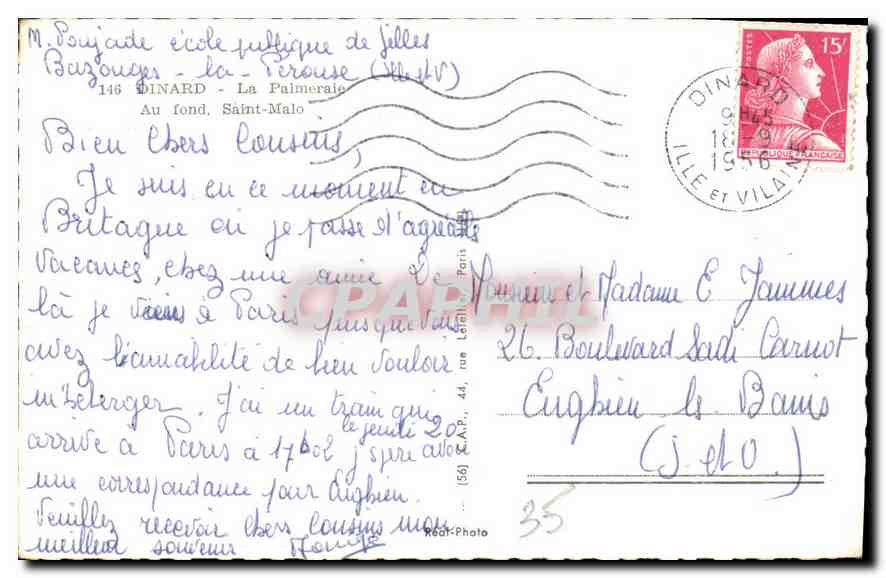 M. Poujade école publique de filles
Bazouges-la-Perouse (Ille et V)
146 DINARD - La Palmeraie
Au fond, Saint-Malo
Bien chers Cousins,
Je suis en ce moment en
Bretagne où je passe d'agréables
vacances, chez une amie De
là je viens à Paris puisque vous
avez l'amabilité de bien vouloir
m'héberger. J'ai un train qui
le jeudi 20
arrive à Paris à 17h02 j'espère avoir
une correspondance pour Enghien.
Veuillez recevoir chers Cousins mon
meilleur souvenir
Réal-Photo
(56) C.A.P., 44, rue Letellier Paris
POSTES
15F
REPUBLIQUE FRANÇAISE
DINARD
9H45
18-9
1956
ILLE ET VILAINE
Monsieur et Madame E Jammes
26 Boulevard Sadi Carnot
Enghien les Bains
(S. et O.)
35
CPAPHIL